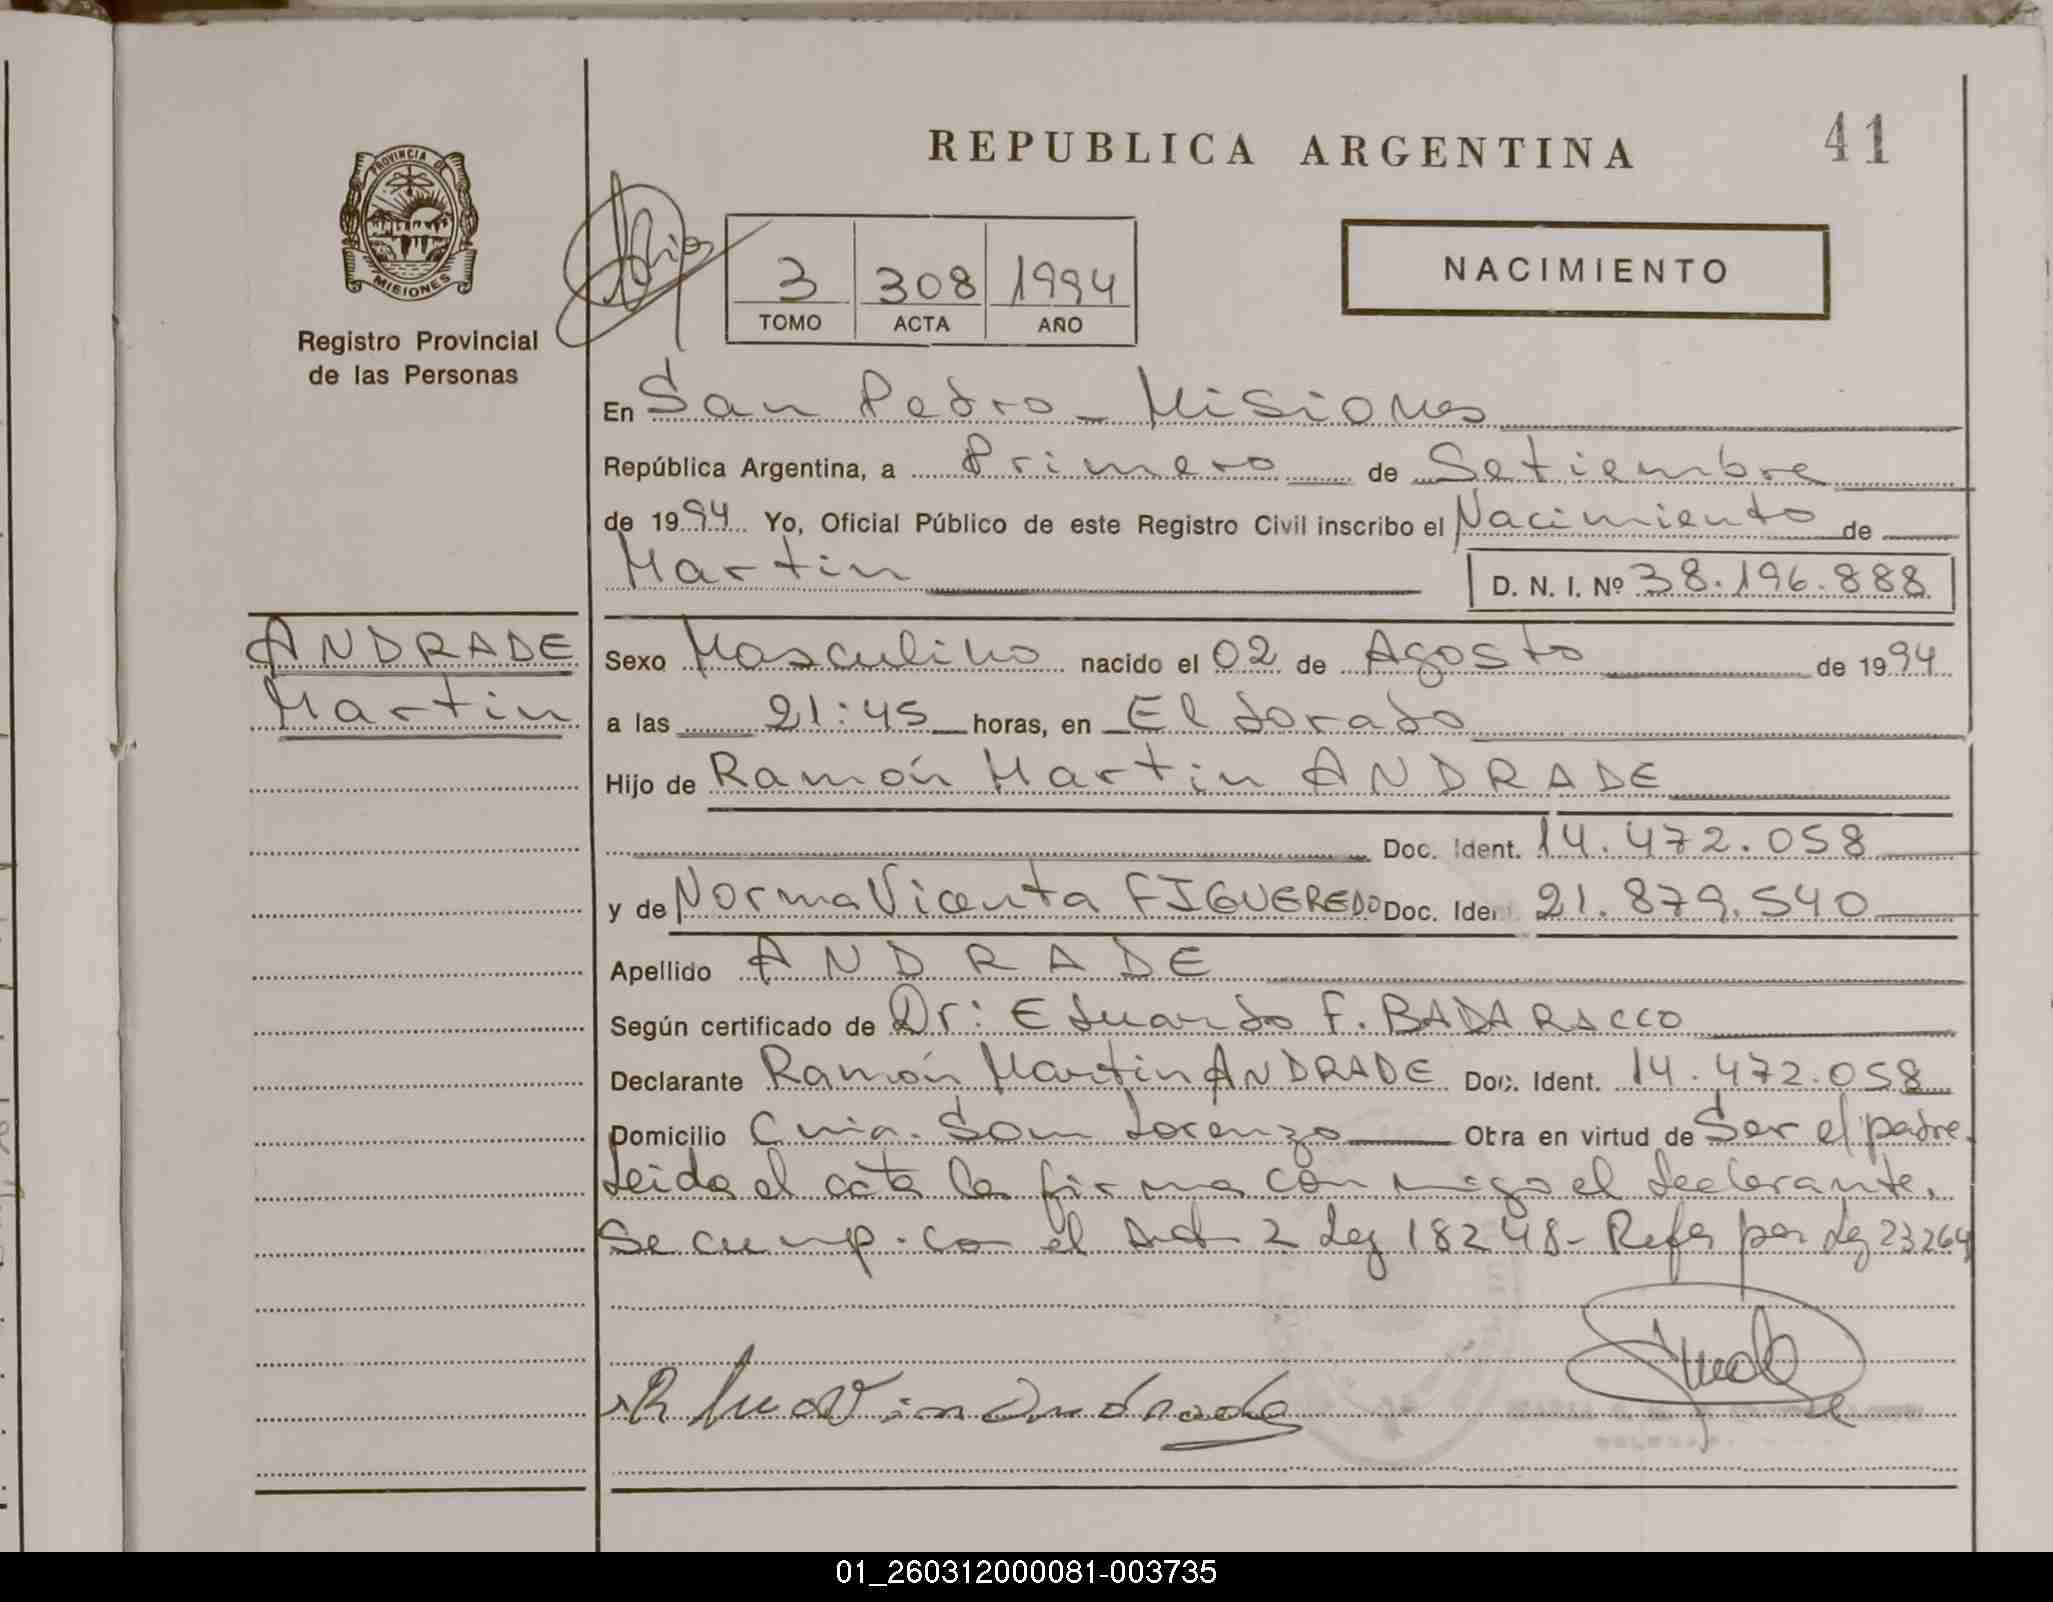 REPUBLICA ARGENTINA
41
PROVINCIA DE
MISIONES
Registro Provincial
de las Personas
3 308 1994
TOMO ACTA AÑO
NACIMIENTO
En San Pedro - Misiones
República Argentina, a Primero de Setiembre
de 1994 Yo, Oficial Público de este Registro Civil inscribo el Nacimiento de
Martin
D. N. I. Nº 38.196.888
ANDRADE
Martin
Sexo Masculino nacido el 02 de Agosto de 1994
a las 21:45 horas, en Eldorado
Hijo de Ramón Martin ANDRADE
Doc. Ident. 14.472.058
y de Norma Vicenta FIGUEREDO Doc. Ident. 21.879.540
Apellido ANDRADE
Según certificado de Dr: Eduardo F. BADARACCO
Declarante Ramón Martin ANDRADE Doc. Ident. 14.472.058
Domicilio Cnia. San Lorenzo Obra en virtud de Ser el padre.
Leida el acta la firma con migo el declarante.
Se cump. con el Art 2 Ley 18248 - Refor por Ley 23264
01_260312000081-003735